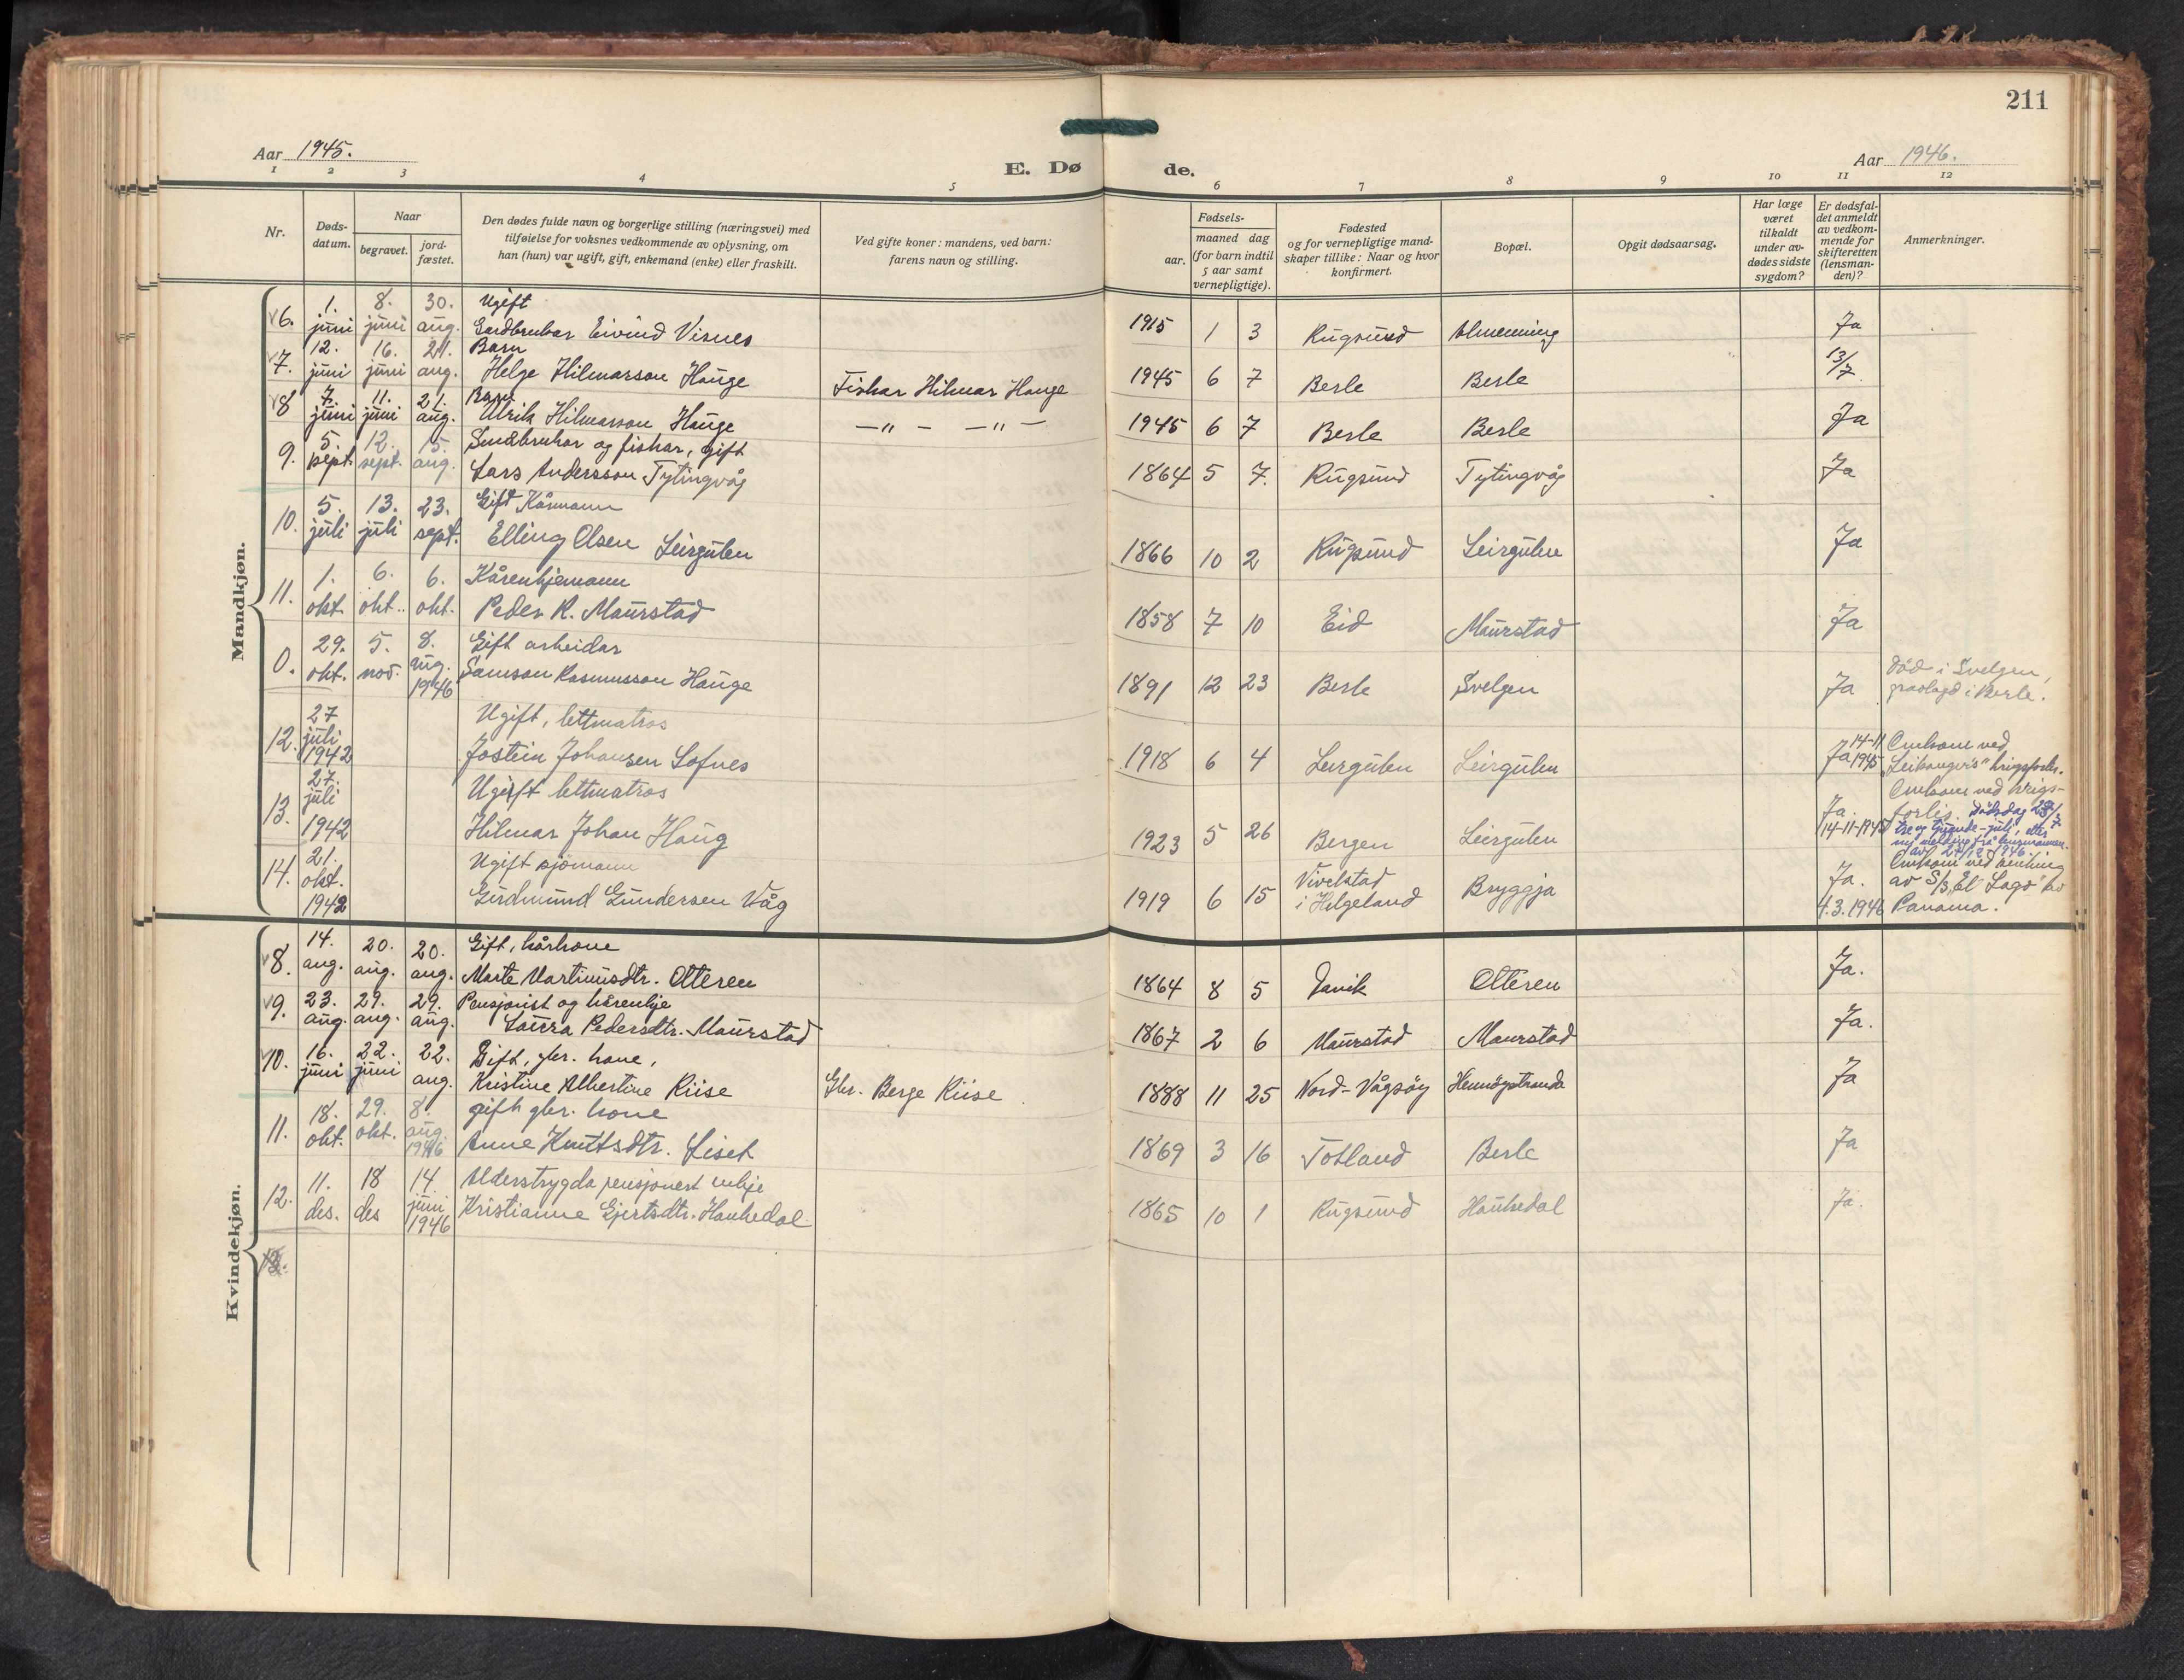 211
Aar 1945.
E. Dø de.
Aar 1946.
1 2 3 4 5 6 7 8 9 10 11 12
Nr.
Døds-
datum.
Naar
begravet.
jord-
fæstet.
Den dødes fulde navn og borgerlige stilling (næringsvei) med
tilføielse for voksnes vedkommende av oplysning, om
han (hun) var ugift, gift, enkemand (enke) eller fraskilt.
Ved gifte koner: mandens, ved barn:
farens navn og stilling.
Fødsels-
aar.
maaned dag
(for barn indtil
5 aar samt
vernepligtige).
Fødested
og for vernepligtige mand-
skaper tillike: Naar og hvor
konfirmert.
Bopæl.
Opgit dødsaarsag.
Har læge
været
tilkaldt
under av-
dødes sidste
sygdom?
Er dødsfal-
det anmeldt
av vedkom-
mende for
skifteretten
(lensman-
den)?
Anmerkninger.
Mandkjøn.
1. 8. 30. Ugift
6. juni juni aug. Gardbrukar Eivind Visnes 1915 1 3 Rugsund Almenning Ja
12. 16. 21. Barn
7. juni juni aug. Helge Hilmarson Hauge Fiskar Hilmar Hauge 1945 6 7 Berle Berle 13/7
7. 11. 21. Barn
8 juni juni aug. Ulrik Hilmarson Hauge —"— —"— 1945 6 7 Berle Berle Ja
5. 12. 15. Småbrukar og fiskar, gift
9. sept. sept. aug. Lars Andersson Tytingvåg 1864 5 7. Rugsund Tytingvåg Ja
5. 13. 23. Gift Kårmann
10. juli juli sept. Elling Olsen Leirgulen 1866 10 2 Rugsund Leirgulen Ja
1. 6. 6. Kårenkjemann
11. okt. okt.. okt. Peder R. Maurstad 1858 7 10 Eid Maurstad Ja
29. 5. 8. Gift arbeidar
0. okt. nov. aug. 1946 Samson Rasmusson Hauge 1891 12 23 Berle Svelgen Ja
Död i Svelgen,
gravlagd i Berle.
27 Ugift, lettmatros
12. juli 1942 Jostein Johansen Sofnes 1918 6 4 Leirgulen Leirgulen Ja 14-11 1945
Omkom ved
"Leikangers" krigsforlis.
27. Ugift lettmatros
13. juli 1942 Hilmar Johan Haug 1923 5 26 Bergen Leirgulen Ja. 14-11-1945
Omkom ved krigs-
forlis. Dødsdag 23/7
tre og tjuande-juli, etter
ny melding frå lensmannen
av 27/12-1946.
21. Ugift sjömann
14. okt. 1942 Gudmund Gundersen Våg 1919 6 15 Vivelstad
i Helgeland Bryggja Ja. 4.3.1946
Omkom ved senking
av S/S "El Lago" av
Panama.
Kvindekjøn.
14. 20. 20. Gift, kårkone
8. aug. aug. aug. Marte Martinusdtr. Otteren 1864 8 5 Davik Otteren Ja.
23. 29. 29. Pensjonist og kårenkje
9. aug. aug. aug. Laura Pedersdtr. Maurstad 1867 2 6 Maurstad Maurstad Ja.
16. 22. 22. Gift, gbr. kone,
10. juni juni aug. Kristine Albertine Riise Gbr. Berge Riise 1888 11 25 Nord-Vågsöy Hennöystranda Ja
18. 29. 8. gift gbr. kone
11. okt. okt. aug. 1946 Anne Knutsdtr. Liset 1869 3 16 Totland Berle Ja
11. 18 14 Alderstrygda pensjonert enkje
12. des. des juni 1946 Kristianne Gjertsdtr. Haukedal 1865 10 1 Rugsund Haukedal Ja.
13.